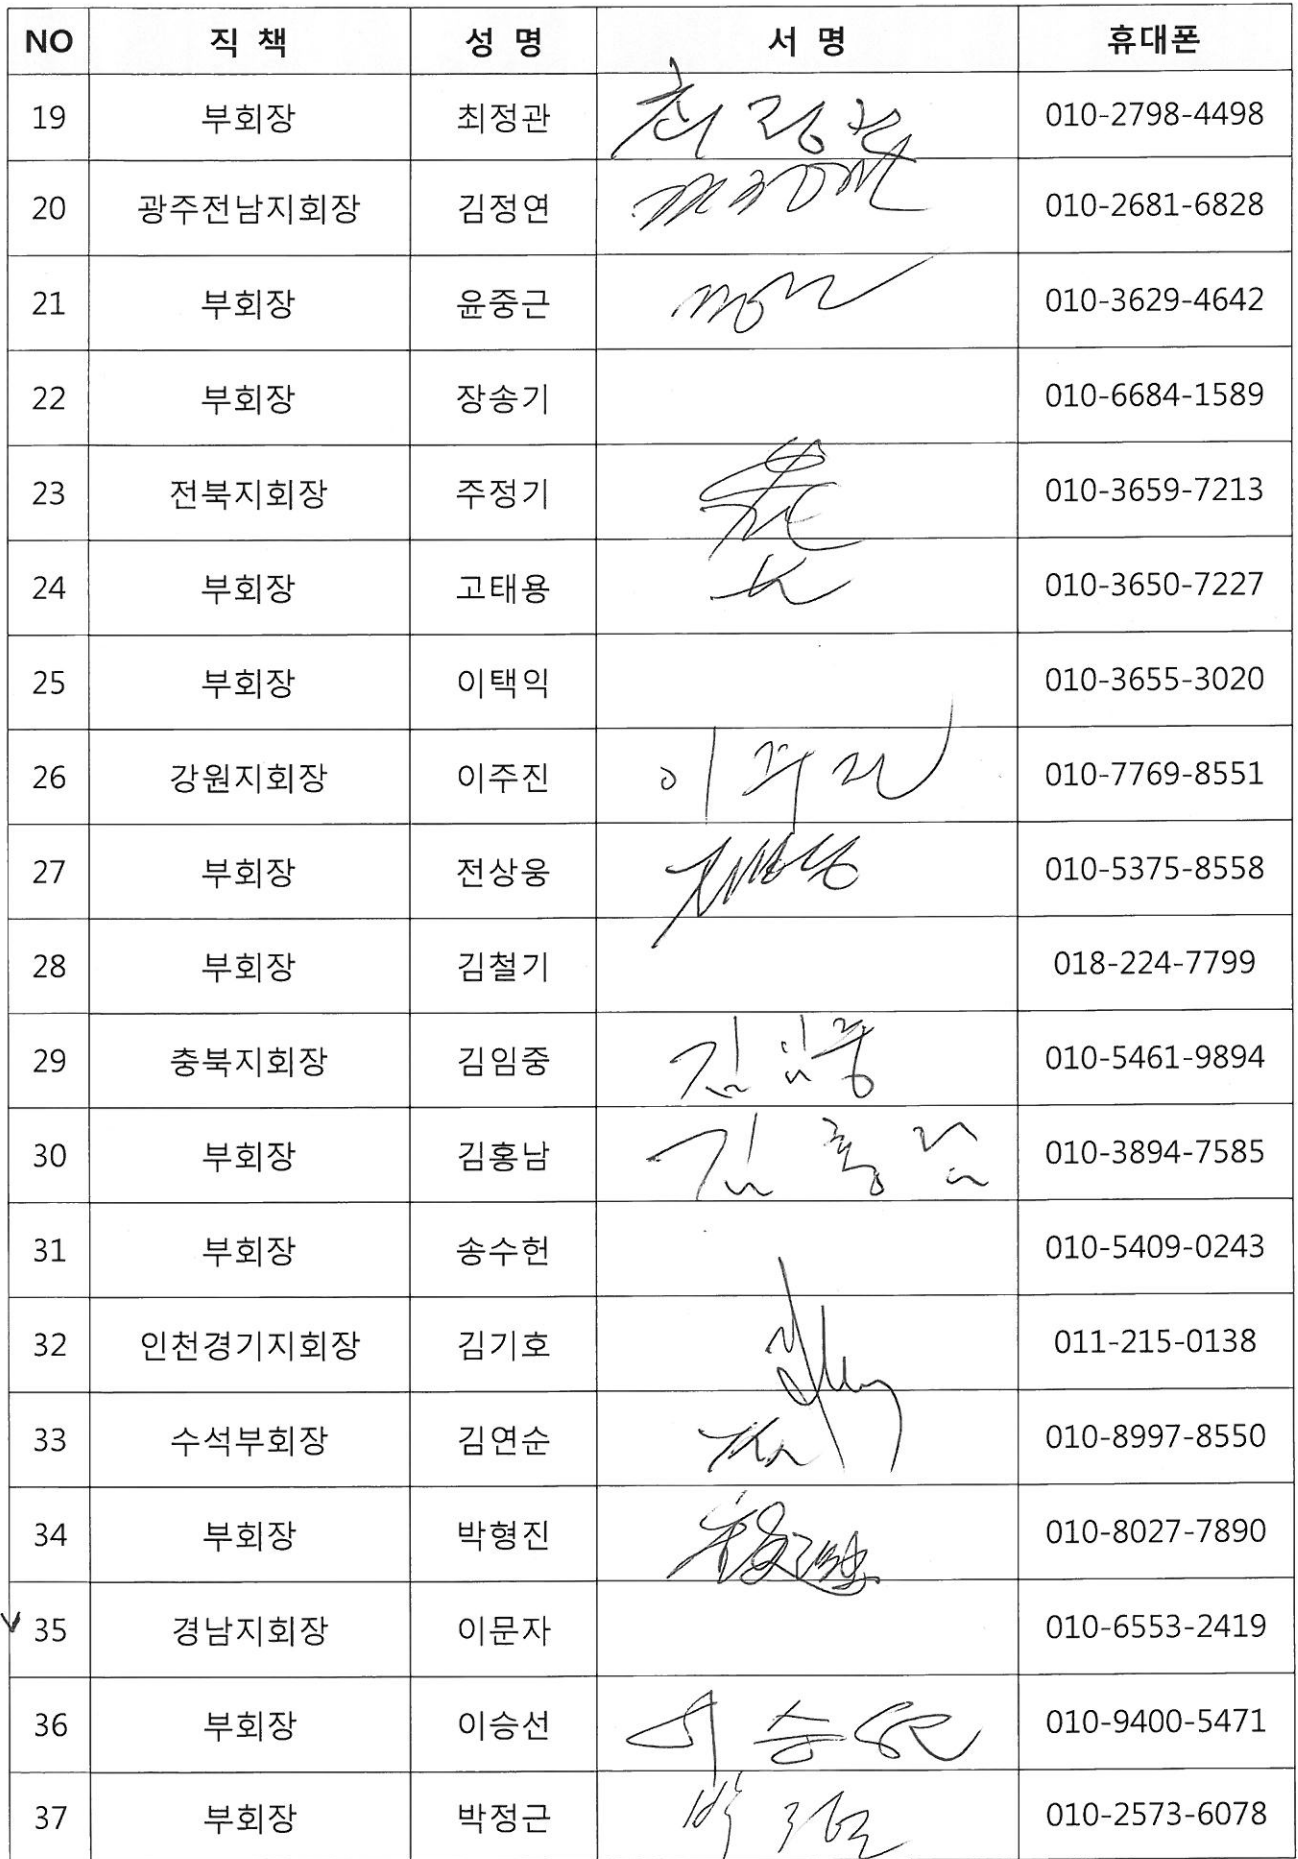 NO 직 책 성 명 서 명 휴대폰
19 부회장 최정관 최정관 010-2798-4498
20 광주전남지회장 김정연 010-2681-6828
21 부회장 윤중근 010-3629-4642
22 부회장 장송기 010-6684-1589
23 전북지회장 주정기 010-3659-7213
24 부회장 고태용 010-3650-7227
25 부회장 이택익 010-3655-3020
26 강원지회장 이주진 이주진 010-7769-8551
27 부회장 전상웅 010-5375-8558
28 부회장 김철기 018-224-7799
29 충북지회장 김임중 김임중 010-5461-9894
30 부회장 김홍남 김홍남 010-3894-7585
31 부회장 송수헌 010-5409-0243
32 인천경기지회장 김기호 011-215-0138
33 수석부회장 김연순 010-8997-8550
34 부회장 박형진 010-8027-7890
35 경남지회장 이문자 010-6553-2419
36 부회장 이승선 이승선 010-9400-5471
37 부회장 박정근 박정근 010-2573-6078